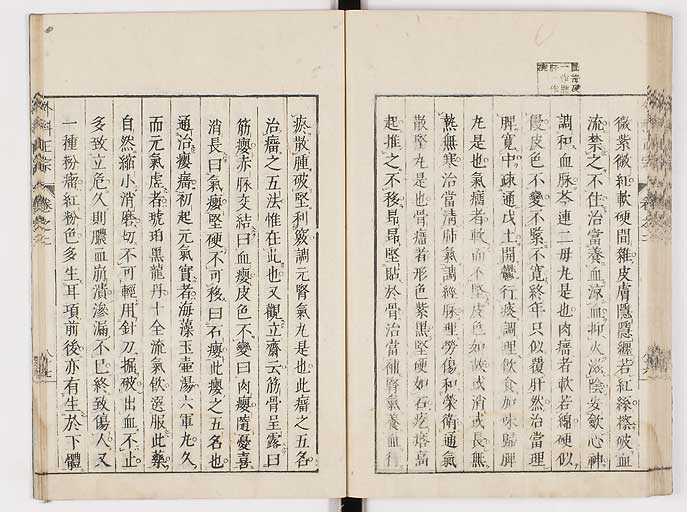 微紫微紅軟硬間雜皮膚隱隱纏若紅絲擦破血
流禁之不住治當養血涼血抑火滋陰安斂心神
調和血脉芩連二母丸是也肉瘤者軟若綿硬似
饅皮色不變不緊不寬終年只似覆肝然治當理
脾寛中疎通戊土開鬱行痰調理飲食加味歸脾
丸是也氣瘤者軟而不堅皮色如故或消或長無
熱無寒治當清肺氣調經脉理勞傷和榮衛通氣
散堅丸是也骨瘤者形色紫黒堅硬如石疙瘩高
起推之不移昻昻堅貼於骨治當補腎氣養血行
瘀散腫破堅利竅調元腎氣丸是也此瘤之五名
治瘤之五法惟在此也又觀立齋云筋骨呈露曰
筋癭赤脉交結曰血癭皮色不變曰肉癭隨憂喜
消長曰氣癭堅硬不可移曰石癭此癭之五名也
通治癭瘤初起元氣實者海藻玉壷湯六軍丸久
而元氣虚者琥珀黒龍丹十全流氣飲選服此藥
自然縮小消磨切不可輕用針刀掘破出血不止
多致立危久則膿血崩潰滲漏不已終致傷人又
一種粉瘤紅粉色多生耳項前後亦有生於下體
外科正宗
卷之二